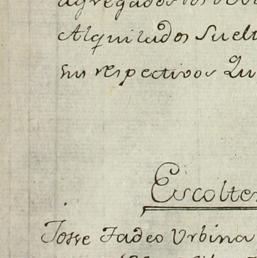 agregados
Alquilados Suelt
sus respectivos Qu
Escolte
Josse Tadeo Urbina